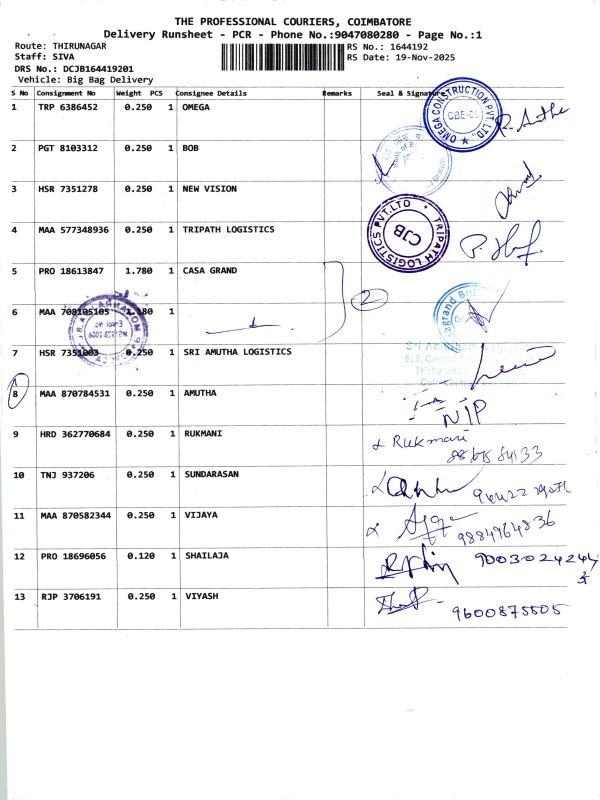 THE PROFESSIONAL COURIERS, COIMBATORE
Delivery Runsheet - PCR - Phone No.:9047080280 - Page No.:1
Route: THIRUNAGAR RS No.: 1644192
Staff: SIVA RS Date: 19-Nov-2025
DRS No.: DCJB164419201
Vehicle: Big Bag Delivery
S No Consignment No Weight PCS Consignee Details Remarks Seal & Signature
1 TRP 6386452 0.250 1 OMEGA
OMEGA CONSTRUCTION PVT. LTD.,
2 PGT 8103312 0.250 1 BOB
3 HSR 7351278 0.250 1 NEW VISION
4 MAA 577348936 0.250 1 TRIPATH LOGISTICS
TRIPATH LOGISTICS PVT.LTD
CJB
5 PRO 18613847 1.780 1 CASA GRAND
2
6 MAA 708105105 1.180 1
7 HSR 7351003 0.250 1 SRI AMUTHA LOGISTICS
8 MAA 870784531 0.250 1 AMUTHA
NIP
9 HRD 362770684 0.250 1 RUKMANI
Rukmani
10 TNJ 937206 0.250 1 SUNDARASAN
11 MAA 870582344 0.250 1 VIJAYA
9884964836
12 PRO 18696056 0.120 1 SHAILAJA
9003024244
13 RJP 3706191 0.250 1 VIYASH
9600875505